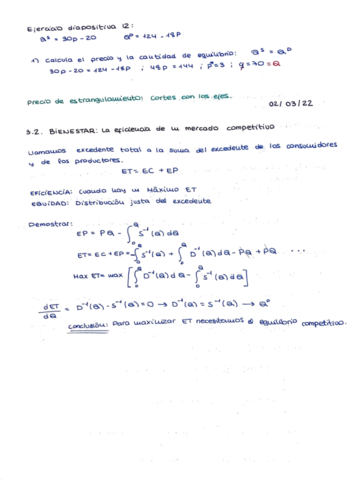 Ejercicio diapositiva 12:
Qˢ = 30p - 20 Qᴰ = 124 - 18p
1) Calcula el precio y la cantidad de equilibrio: Qˢ = Qᴰ
30p - 20 = 124 - 18p ; 48p = 144 ; p = 3 ; q = 70 = Q
Precio de estrangulamiento: Cortes con los ejes.
02/03/22
3.2. BIENESTAR: La eficiencia de un mercado competitivo
Llamamos excedente total a la suma del excedente de los consumidores
y de los productores.
ET = EC + EP
EFICIENCIA: Cuando hay un Máximo ET
EQUIDAD: Distribución justa del excedente
Demostrar:
EP = PQ - ∫₀^Q S⁻¹(Q) dQ
ET = EC + EP = -∫₀^Q S⁻¹(Q) + ∫₀^Q D⁻¹(Q) dQ - PQ + PQ ...
Max ET = max [∫₀^Q D⁻¹(Q) dQ - ∫₀^Q S⁻¹(Q) dQ]
dET/dQ = D⁻¹(Q) - S⁻¹(Q) = 0 → D⁻¹(Q) = S⁻¹(Q) →
Conclusión: Para maximizar ET necesitamos el equilibrio competitivo.